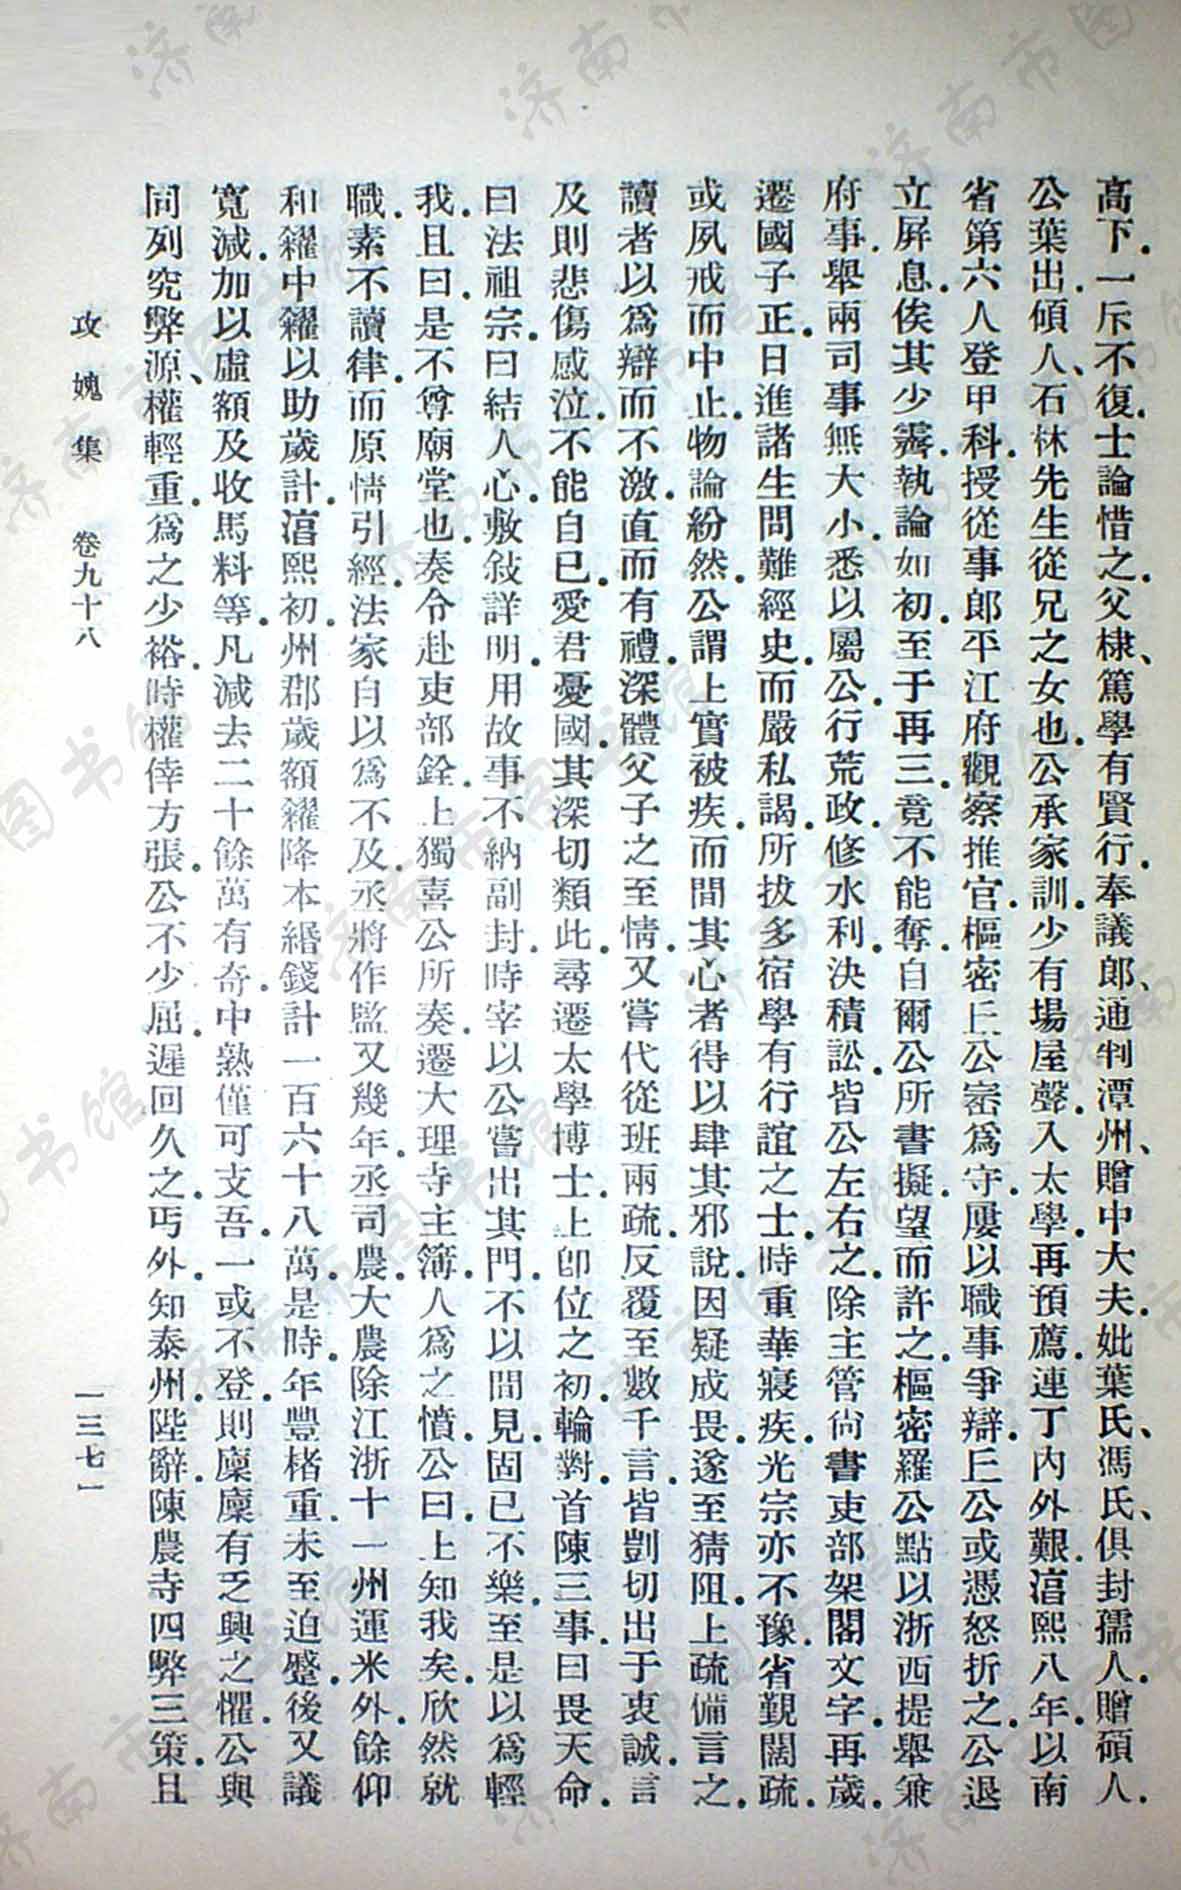 高下.一斥不復.士論惜之.父棣、篤學有賢行.奉議郎、通判潭州、贈中大夫.妣葉氏、馮氏、俱封孺人.贈碩人.
公葉出.碩人、石林先生從兄之女也.公承家訓.少有場屋聲.入太學.再預薦.連丁內外艱.湻熙八年.以南
省第六人登甲科.授從事郎平江府觀察推官.樞密丘公崈爲守.屢以職事爭辯.丘公或憑怒折之.公退
立屏息.俟其少霽.執論如初.至于再三.竟不能奪.自爾公所書擬.望而許之.樞密羅公點以浙西提舉兼
府事.舉兩司事無大小.悉以屬公.行荒政.修水利.決積訟.皆公左右之.除主管尙書吏部架閣文字.再歲.
遷國子正.日進諸生問難經史.而嚴私謁.所拔多宿學有行誼之士.時重華寢疾.光宗亦不豫.省覲闊疏.
或夙戒而中止.物論紛然.公謂上實被疾.而間其心者得以肆其邪說.因疑成畏.遂至猜阻.上疏備言之.
讀者以爲辯而不激.直而有禮.深體父子之至情.又嘗代從班兩疏.反覆至數千言.皆剴切出于衷誠.言
及則悲傷感泣.不能自已.愛君憂國.其深切類此.尋遷太學博士.上卽位之初.輪對.首陳三事.曰畏天命.
曰法祖宗.曰結人心.敷敍詳明.用故事不納副封.時宰以公嘗出其門.不以間見.固已不樂.至是以爲輕
我.且曰.是不尊廟堂也.奏令赴吏部銓.上獨喜公所奏.遷大理寺主簿.人爲之憤.公曰.上知我矣.欣然就
職.素不讀律.而原情引經.法家自以爲不及.丞將作監.又幾年.丞司農.大農除江浙十一州運米外.餘仰
和糴中糴以助歲計.湻熙初.州郡歲額糴降本緡錢計一百六十八萬.是時.年豐楮重.未至迫蹙.後又議
寬減.加以虛額及收馬料等.凡減去二十餘萬有奇.中熟僅可支吾.一或不登.則廩廩有乏興之懼.公與
同列究弊源、權輕重.爲之少裕.時權倖方張.公不少屈.遲回久之.丐外.知泰州.陛辭.陳農寺四弊三策.且
攻媿集 卷九十八 一三七一